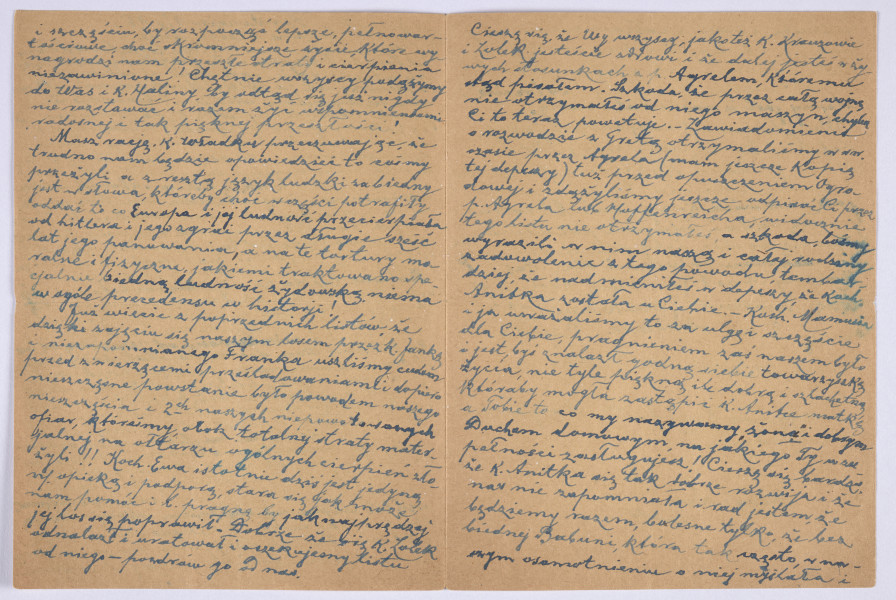 i szczęścia, by rozpocząć lepsze, pełnowar-
tościowe, choć skromniejsze życie które wy
nagrodzi nam przeszłe straty i cierpienia
niezawinione! Chętnie wszyscy podążymy
do Was i K. Haliny by odtąd się już nigdy
nie rozstawać i razem żyć wspomnieniami
radosnej i tak pięknej przeszłości!
Masz rację, K. Władku przeczuwając, że
trudno nam będzie opowiedzieć to cośmy
przeżyli a zresztą język ludzki za biedny
jest w słowa, któreby choć w części potrafiły
oddać to co Europa i jej ludność przecierpiała
od hitlera i jego zgrai przez długie sześć
lat jego panowania, a na te tortury mo
ralne i fizyczne, jakiemi traktowano spe-
cjalnie biedną ludność żydowską niema
w ogóle precedensu w historji!
Już wiecie z poprzednich listów, że
dzięki zajęciu się naszym losem przez K. Jankę
i niezapomnianego Franka uszliśmy cudem
przed zwierzęcemi prześladowaniami i dopiero
nieszczęsne powstanie było powodem naszego
nieszczęścia i 2ch naszych niepowetowanych
ofiar, któreśmy obok totalnej straty mater-
jalnej na ołtarzu ogólnych cierpień zło
żyli!! Koch. Ewa istotnie dziś jest jedyną
n/ opieką i podporą, stara się jak może
nam pomóc i b. pragnę by jaknajprędzej
jej los się poprawił. Dobrze że się K. Lolek
odnalazł i uratował i oczekujemy listu
od niego – pozdrów go od nas.
Cieszę się, że Wy wszyscy, jakoteż K. Krauzowie
i Lolek jesteście zdrowi i że dalej jesteś w ży
wych stosunkach z p. Agrelem, któremu
stąd pisałem. Szkoda, że przez całą wojnę
nie otrzymałeś od niego maszyn, chyba
Ci to teraz powetuje. – Zawiadomienie
o rozwodzie z Gretą otrzymaliśmy w sw.
czasie przez Agrela (mam jeszcze kopię
tej depeszy) tuż przed opuszczeniem Ogro-
dowej i zdążyliśmy jeszcze odpisać Ci przez
p. Agrela lub Hoffenreicha, widocznie
tego listu nie otrzymałeś, a szkoda, bośmy
wyrazili w nim nasze i całej rodziny
zadowolenie z tego powodu, tembar
dziej, że nadmieniłeś w depeszy, że Koch.
Anitka została u Ciebie. – Koch. Mamusia
i ja uważaliśmy to za ulgę i szczęście
dla Ciebie, pragnieniem zaś naszem było
i jest, byś znalazł godną siebie towarzyszkę
życia, nie tyle piękną ile dobrą i szlachetną
któraby mogła zastąpić K. Anitce matkę
a Tobie to co my nazywamy, żoną i dobrym
Duchem domowym na jakiego Ty w zu
pełności zasługujesz! Cieszę się bardzo
że K. Anitka się tak dobrze rozwija i że
nas nie zapomniała i rad jestem, że
będziemy razem, bolesne tylko, że bez
biednej Babuni, która tak często, w na-
szym osamotnieniu o niej myślała i